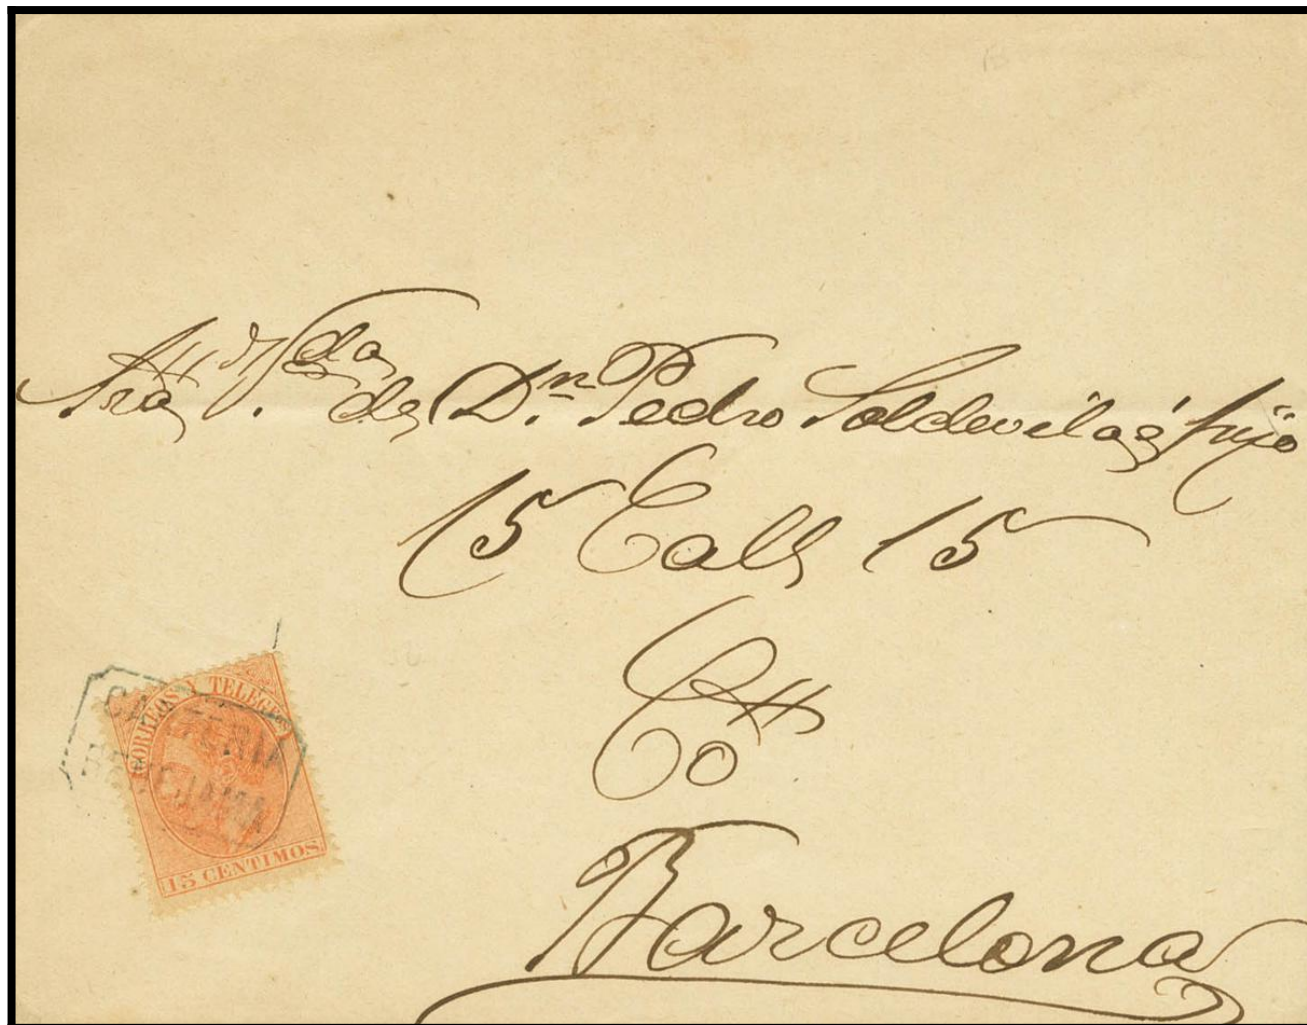 Sra V.da de D.n Pedro Soldevila é hijo
15 Call 15
Barcelona
CORREOS Y TELEGFOS
15 CENTIMOS
CARTERIA